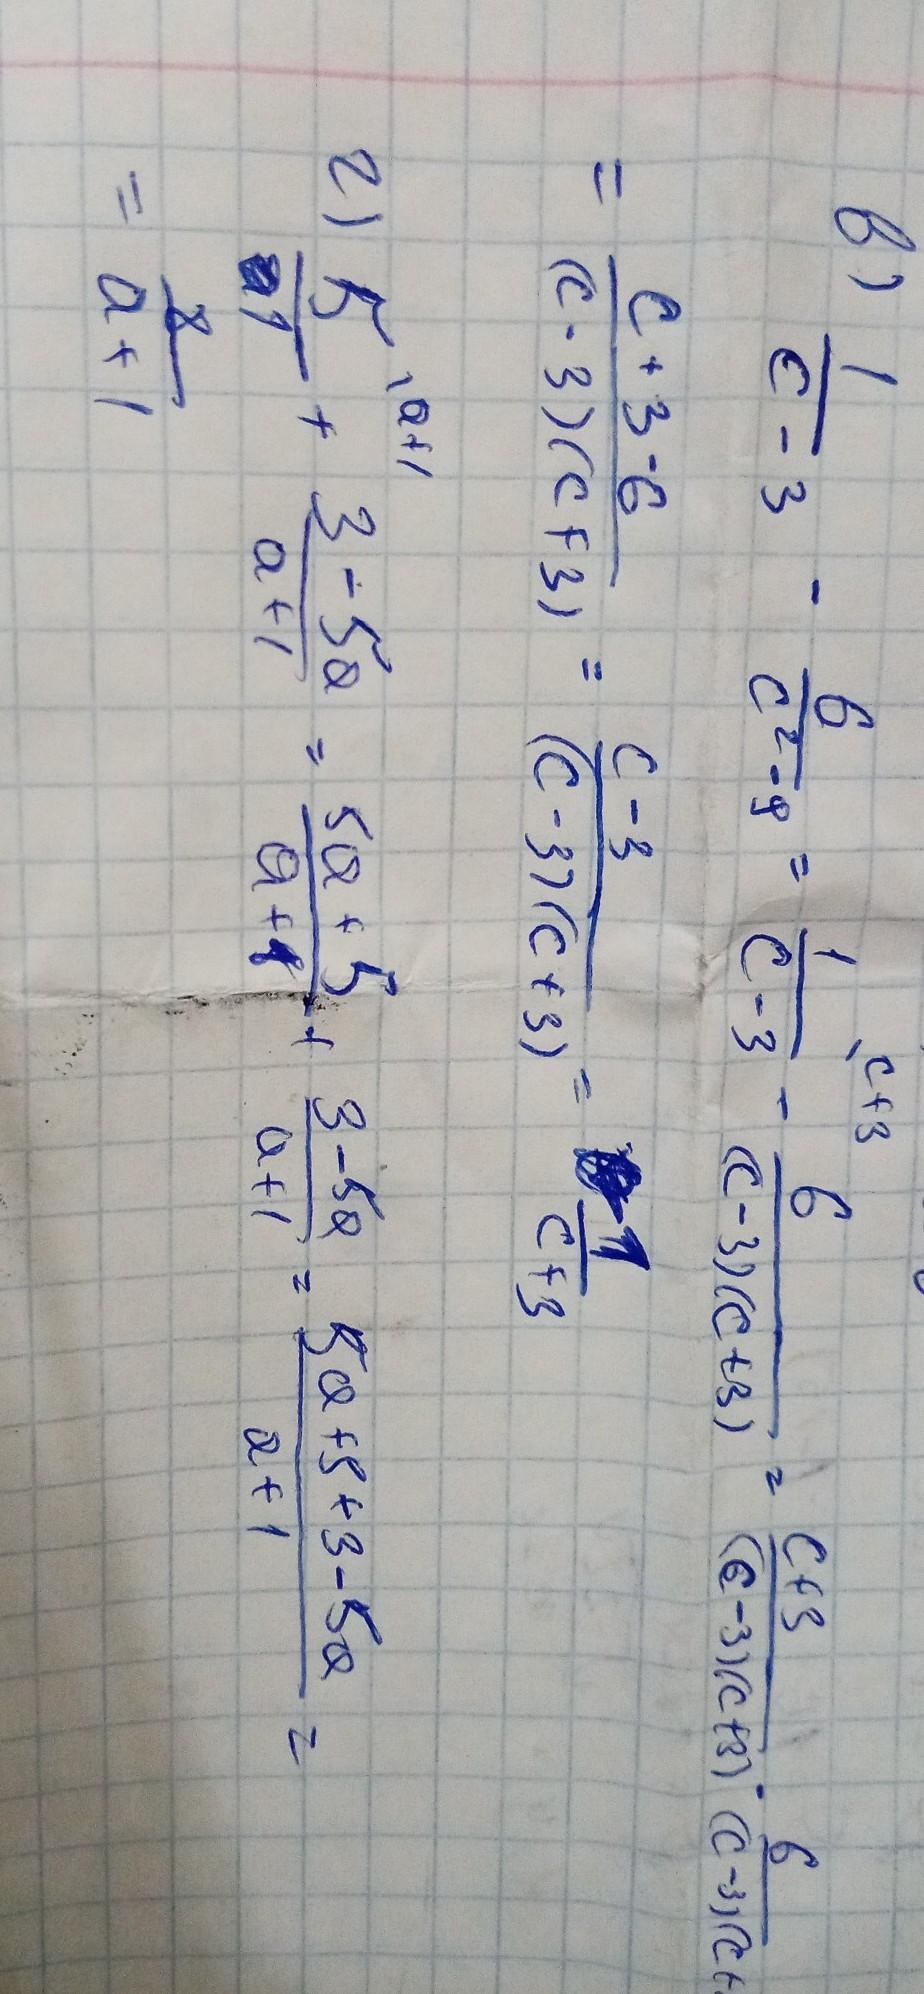 в) 1/(c-3) - 6/(c²-9) = 1/(c-3) \c+3 - 6/((c-3)(c+3)) = (c+3)/((c-3)(c+3)) - 6/((c-3)(c+
= (c+3-6)/((c-3)(c+3)) = (c-3)/((c-3)(c+3)) = 1/(c+3)
г) 5/1 \a+1 + (3-5a)/(a+1) = (5a+5)/(a+1) + (3-5a)/(a+1) = (5a+5+3-5a)/(a+1) =
= 8/(a+1)